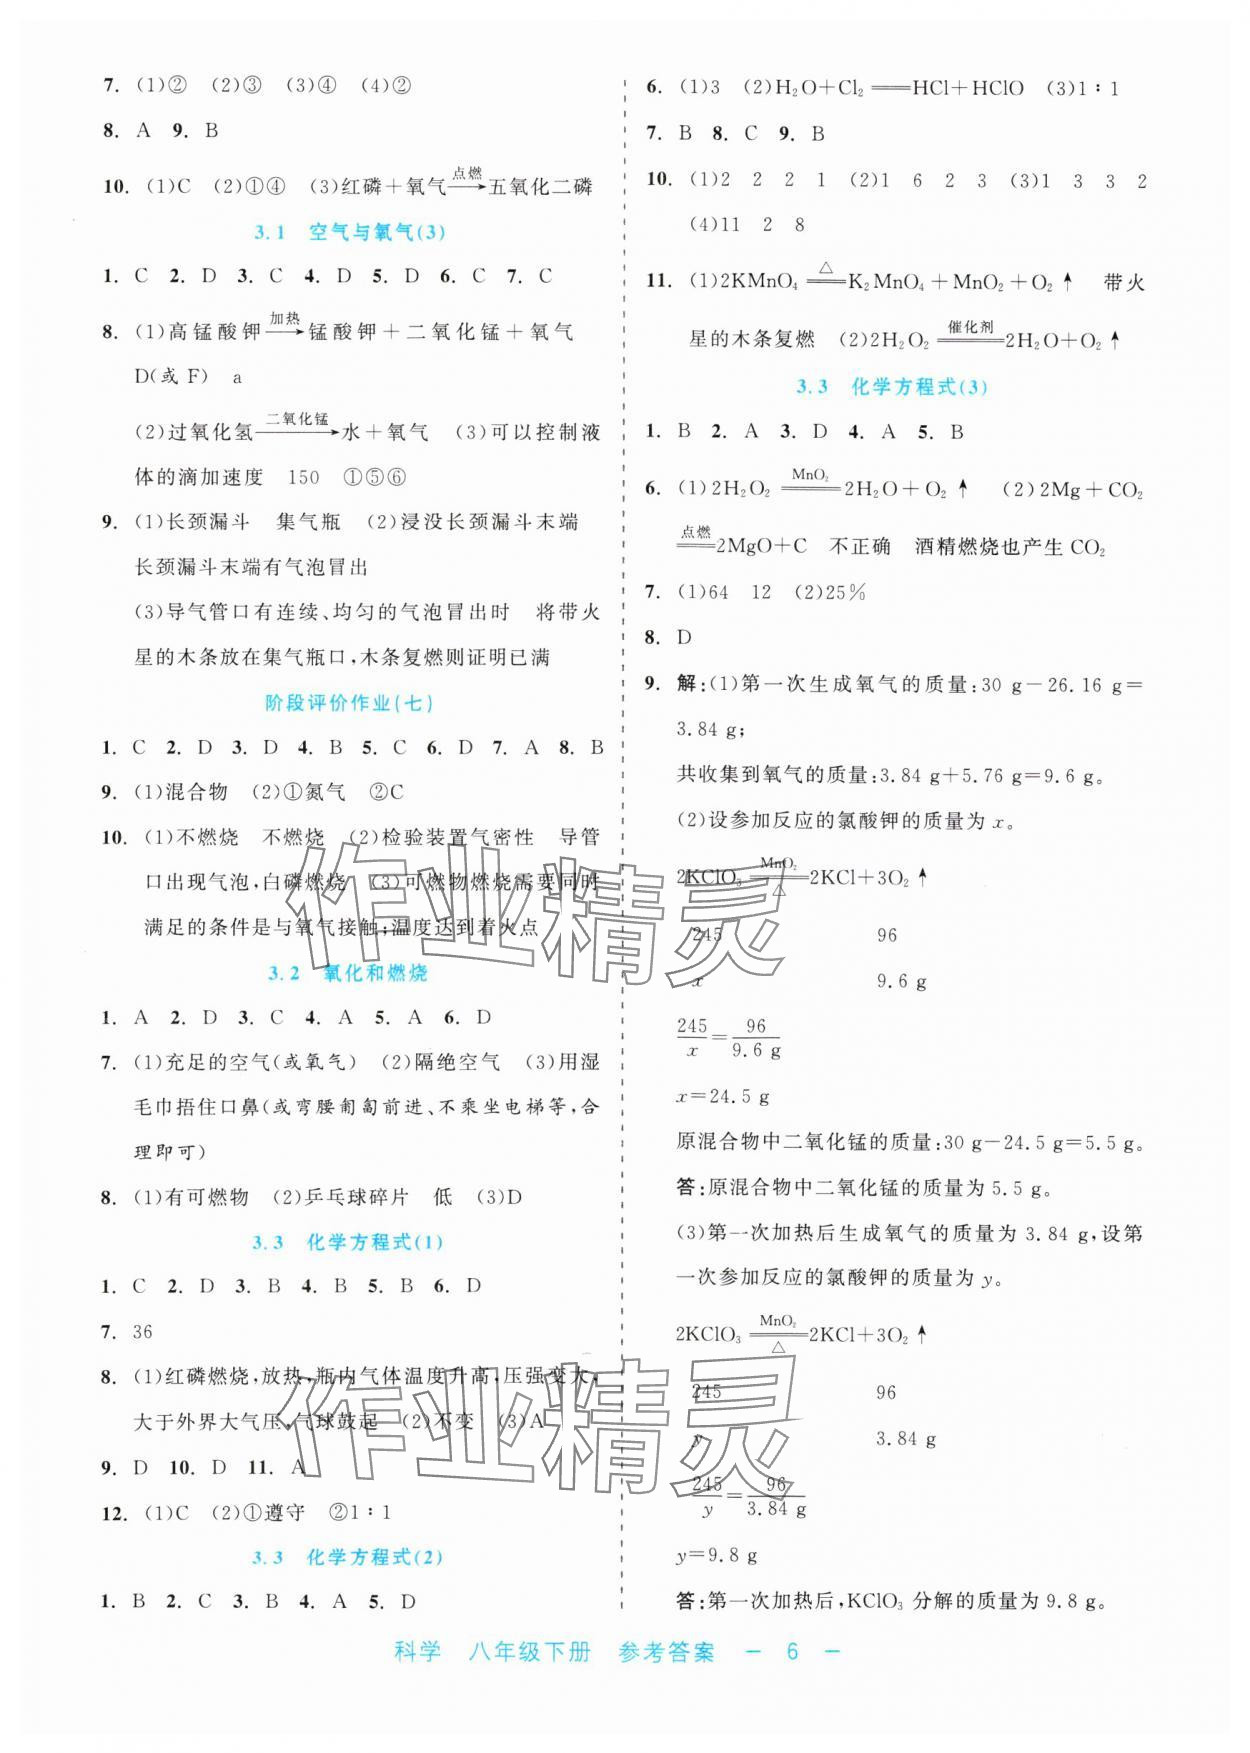 7. (1)② (2)③ (3)④ (4)②
8. A 9. B
10. (1)C (2)①④ (3)红磷+氧气 点燃→ 五氧化二磷
3.1 空气与氧气(3)
1. C 2. D 3. C 4. D 5. D 6. C 7. C
8. (1)高锰酸钾 加热→ 锰酸钾+二氧化锰+氧气
D(或 F) a
(2)过氧化氢 二氧化锰→ 水+氧气 (3)可以控制液
体的滴加速度 150 ①⑤⑥
9. (1)长颈漏斗 集气瓶 (2)浸没长颈漏斗末端
长颈漏斗末端有气泡冒出
(3)导气管口有连续、均匀的气泡冒出时 将带火
星的木条放在集气瓶口,木条复燃则证明已满
阶段评价作业(七)
1. C 2. D 3. D 4. B 5. C 6. D 7. A 8. B
9. (1)混合物 (2)①氮气 ②C
10. (1)不燃烧 不燃烧 (2)检验装置气密性 导管
口出现气泡,白磷燃烧 (3)可燃物燃烧需要同时
满足的条件是与氧气接触;温度达到着火点
3.2 氧化和燃烧
1. A 2. D 3. C 4. A 5. A 6. D
7. (1)充足的空气(或氧气) (2)隔绝空气 (3)用湿
毛巾捂住口鼻(或弯腰匍匐前进、不乘坐电梯等,合
理即可)
8. (1)有可燃物 (2)乒乓球碎片 低 (3)D
3.3 化学方程式(1)
1. C 2. D 3. B 4. B 5. B 6. D
7. 36
8. (1)红磷燃烧,放热,瓶内气体温度升高,压强变大,
大于外界大气压,气球鼓起 (2)不变 (3)A
9. D 10. D 11. A
12. (1)C (2)①遵守 ②1∶1
3.3 化学方程式(2)
1. B 2. C 3. B 4. A 5. D
6. (1)3 (2)H₂O+Cl₂══HCl+HClO (3)1∶1
7. B 8. C 9. B
10. (1)2 2 2 1 (2)1 6 2 3 (3)1 3 3 2
(4)11 2 8
11. (1)2KMnO₄ ══△ K₂MnO₄+MnO₂+O₂↑ 带火
星的木条复燃 (2)2H₂O₂ ══催化剂 2H₂O+O₂↑
3.3 化学方程式(3)
1. B 2. A 3. D 4. A 5. B
6. (1)2H₂O₂ ══MnO₂ 2H₂O+O₂↑ (2)2Mg+CO₂
══点燃 2MgO+C 不正确 酒精燃烧也产生 CO₂
7. (1)64 12 (2)25%
8. D
9. 解:(1)第一次生成氧气的质量:30 g-26.16 g=
3.84 g;
共收集到氧气的质量:3.84 g+5.76 g=9.6 g。
(2)设参加反应的氯酸钾的质量为 x。
2KClO₃ ══MnO₂ △ 2KCl+3O₂↑
245 96
x 9.6 g
245/x=96/9.6 g
x=24.5 g
原混合物中二氧化锰的质量:30 g-24.5 g=5.5 g。
答:原混合物中二氧化锰的质量为 5.5 g。
(3)第一次加热后生成氧气的质量为 3.84 g,设第
一次参加反应的氯酸钾的质量为 y。
2KClO₃ ══MnO₂ △ 2KCl+3O₂↑
245 96
y 3.84 g
245/y=96/3.84 g
y=9.8 g
答:第一次加热后,KClO₃ 分解的质量为 9.8 g。
作业精灵
作业精灵
科学 八年级下册 参考答案 — 6 —